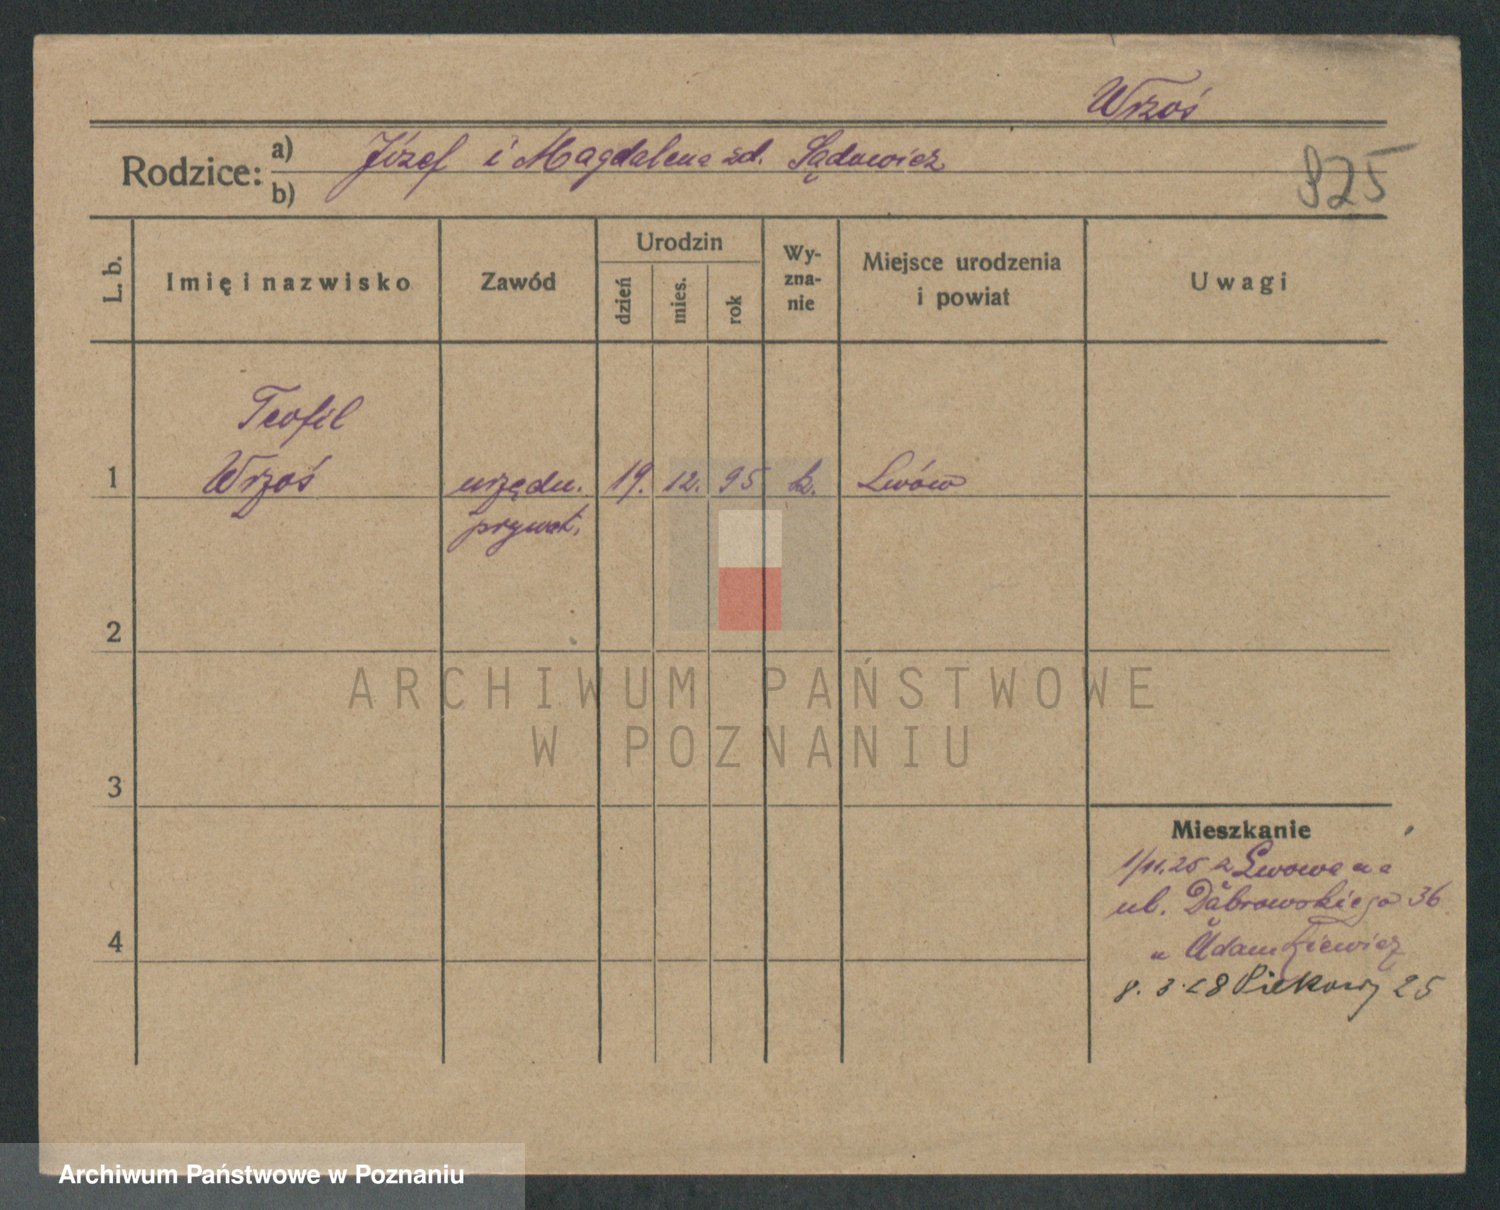 Wrzoś
Rodzice: a) Józef i Magdalena zd. Sądowicz
b)
925
L. b.
Imię i nazwisko
Zawód
Urodzin
dzień
mies.
rok
Wy-
zna-
nie
Miejsce urodzenia
i powiat
Uwagi
Teofil
1 Wrzoś urzędn. 19. 12. 95 k. Lwów
prywat.
2
ARCHIWUM PAŃSTWOWE
W POZNANIU
3
Mieszkanie
1/11.25 z Lwowa na
ul. Dąbrowskiego 36
u Adamkiewicz
4
8. 3. 28 Piekary 25
Archiwum Państwowe w Poznaniu